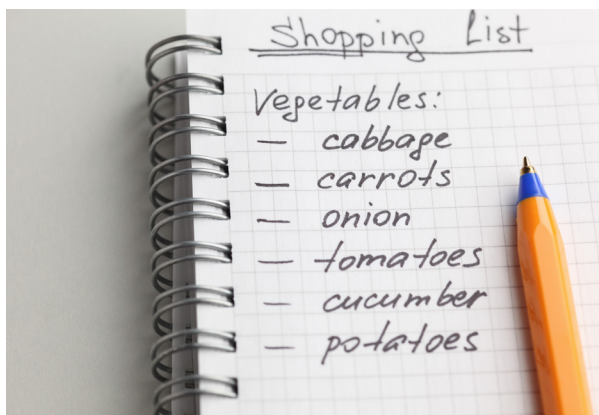 Shopping List
Vegetables:
— cabbage
— carrots
— onion
— tomatoes
— cucumber
— potatoes